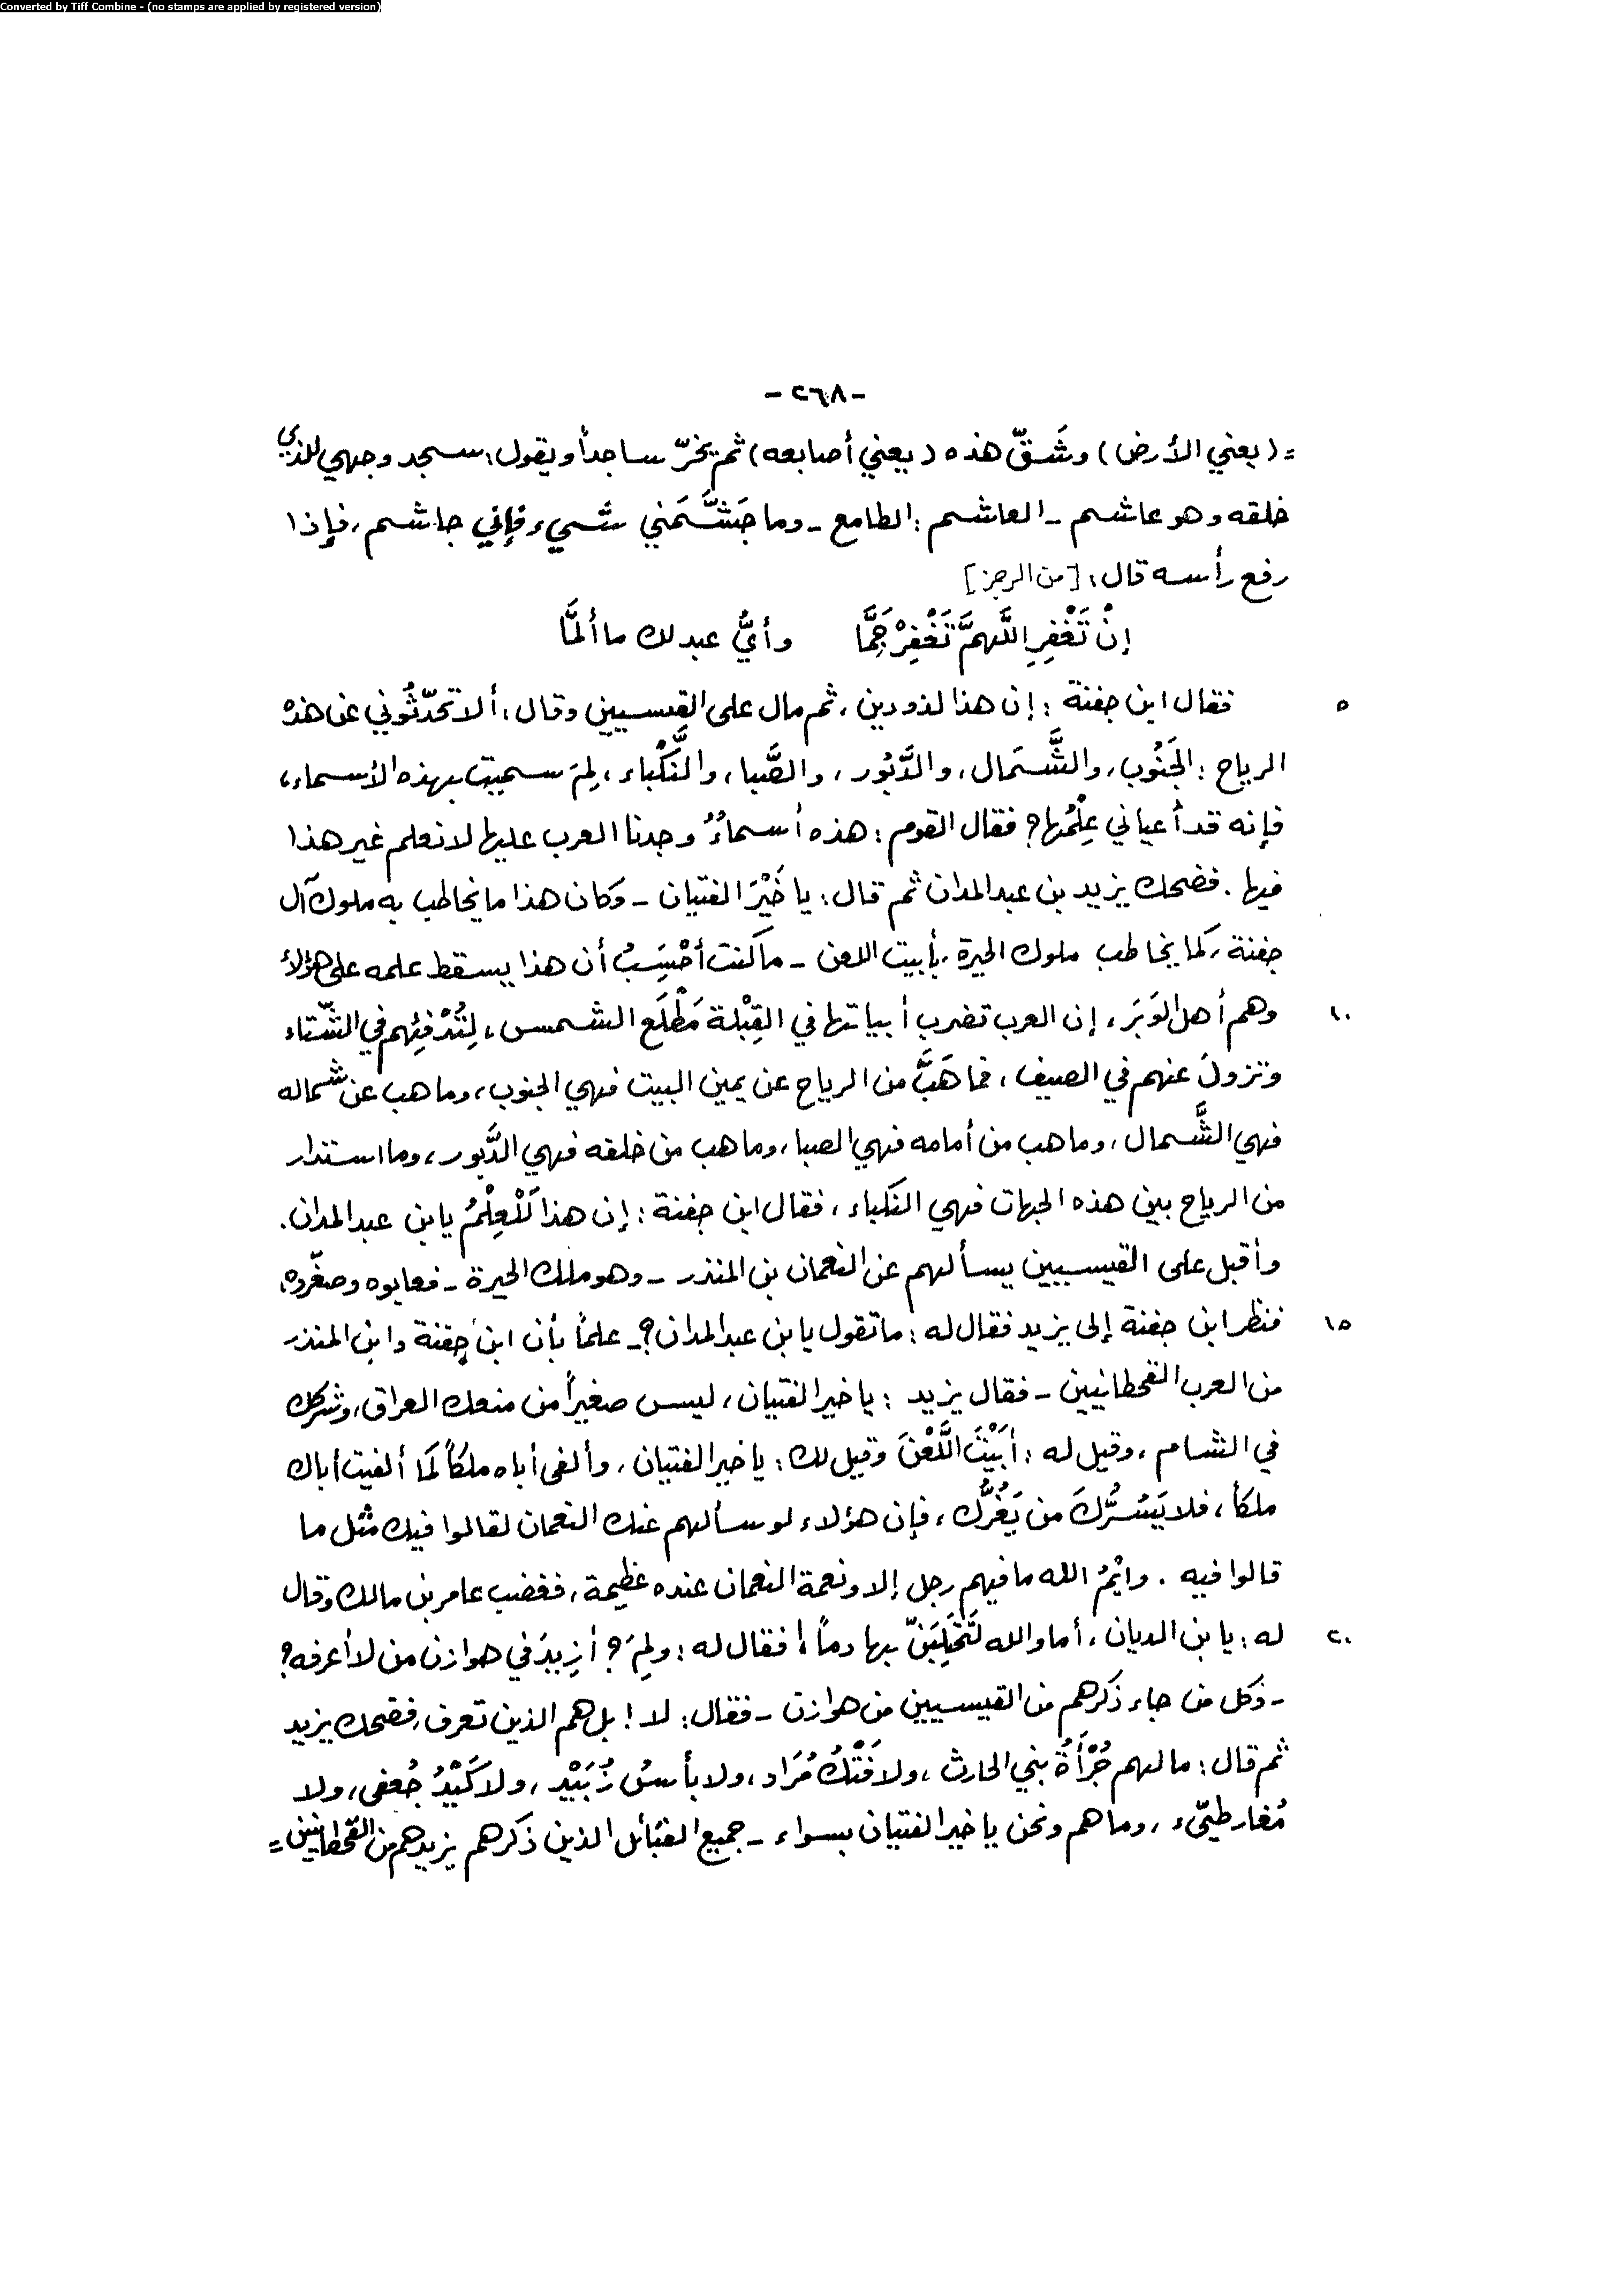 Converted by Tiff Combine - (no stamps are applied by registered version)
- ٢٦٨ -
= (يعني الأرض) وشَقّ هذه (يعني أصابعه) ثم يخرّ ساجداً ويقول: سجد وجهي للذي
خلقه وهو عاشم - العاشم: الطامع - وما جَشَّمَني شيء فإني جاشم، فإذا
رفع رأسه قال: [من الرجز]
إنْ تَغْفِرِ اللَّهمَّ تَغْفِرْ جَمَّا وأيُّ عبد لك ما ألمَّا
٥ فقال ابن جفنة: إن هذا لذو دين، ثم مال على القيسيين وقال: ألا تحدّثُوني عن هذه
الرياح: الجَنُوب، والشَّمَال، والدَّبُور، والصَّبا، والنَّكْباء، لِمَ سميت بهذه الأسماء،
فإنه قد أعياني عِلْمُها؟ فقال القوم: هذه أسماءٌ وجدنا العرب عليها لا نعلم غير هذا
فيها. فضحك يزيد بن عبد المدان ثم قال: يا خَيْرَ الفتيان - وكان هذا ما يخاطب به ملوك آل
جفنة، كما يخاطب ملوك الحيرة، بأبيت اللعن - ما كنت أحْسَِبُ أن هذا يسقط علمه على هؤلاء
١٠ وهم أهل الوَبَر، إن العرب تضرب أبياتها في القِبْلة مَطْلَع الشمس، لِتُدْفِئهم في الشّتاء
وتزولَ عنهم في الصيف، فما هَبَّ من الرياح عن يمين البيت فهي الجنوب، وما هب عن شماله
فهي الشَّمال، وما هب من أمامه فهي الصبا، وما هب من خلفه فهي الدَّبور، وما استدار
من الرياح بين هذه الجهات فهي النكباء، فقال ابن جفنة: إن هذا لَلْعِلْمُ يا بن عبد المدان.
وأقبل على القيسيين يسألهم عن النعمان بن المنذر - وهو ملك الحيرة - فعابوه وصغّروه،
١٥ فنظر ابن جفنة إلى يزيد فقال له: ما تقول يا بن عبد المدان؟ - علماً بأن ابن جفنة وابن المنذر
من العرب القحطانيين - فقال يزيد: يا خير الفتيان، ليس صغيراً من منعك العراق، وشركك
في الشام، وقيل له: أبَيْتَ اللَّعْنَ وقيل لك: يا خير الفتيان، وألفى أباه ملكاً كَمَا ألفيت أباك
ملكاً، فلا يَسُرُّكَ من يَغُرُّك، فإن هؤلاء لو سألهم عنك النعمان لقالوا فيك مثل ما
قالوا فيه. وايْمُ الله ما فيهم رجل إلا ونعمة النعمان عنده عظيمة، فغضب عامر بن مالك وقال
٢٠ له: يا بن الديان، أما والله لَتَحْلِبَنّ بها دماً! فقال له: ولِمَ؟ أزِيدَ في هوازن من لا أعرفه؟
- فكل من جاء ذكرهم من القيسيين من هوازن - فقال: لا! بل هم الذين تعرف، فضحك يزيد
ثم قال: ما لهم جُرْأَةُ بني الحارث، ولا فَتْكُ مُرَاد، ولا بأسُ زُبَيْد، ولا كَيْدُ جُعفى، ولا
مُغار طيّء، وما هم ونحن يا خير الفتيان بسواء - جميع القبائل الذين ذكرهم يزيد هم من القحطانيين =